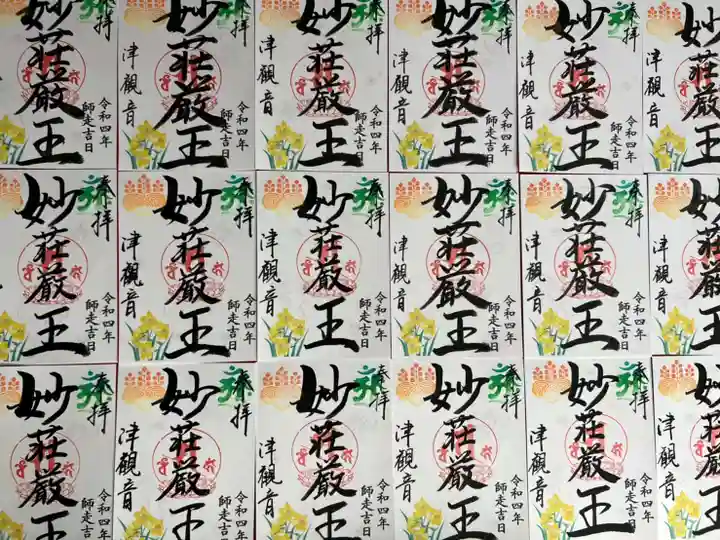 妙荘厳王
津觀音
奉拝
令和四年
師走吉日
妙荘厳王
津觀音
奉拝
令和四年
師走吉日
妙荘厳王
津觀音
奉拝
令和四年
師走吉日
妙荘厳王
津觀音
奉拝
令和四年
師走吉日
妙荘厳王
津觀音
奉拝
令和四年
師走吉日
妙荘厳王
妙荘厳王
津觀音
奉拝
令和四年
師走吉日
妙荘厳王
津觀音
奉拝
令和四年
師走吉日
妙荘厳王
津觀音
奉拝
令和四年
師走吉日
妙荘厳王
津觀音
奉拝
令和四年
師走吉日
妙荘厳王
津觀音
奉拝
令和四年
師走吉日
妙荘厳王
妙荘厳王
津觀音
奉拝
令和四年
師走吉日
妙荘厳王
津觀音
奉拝
令和四年
師走吉日
妙荘厳王
津觀音
奉拝
令和四年
師走吉日
妙荘厳王
津觀音
奉拝
令和四年
師走吉日
妙荘厳王
津觀音
奉拝
令和四年
師走吉日
妙荘厳王